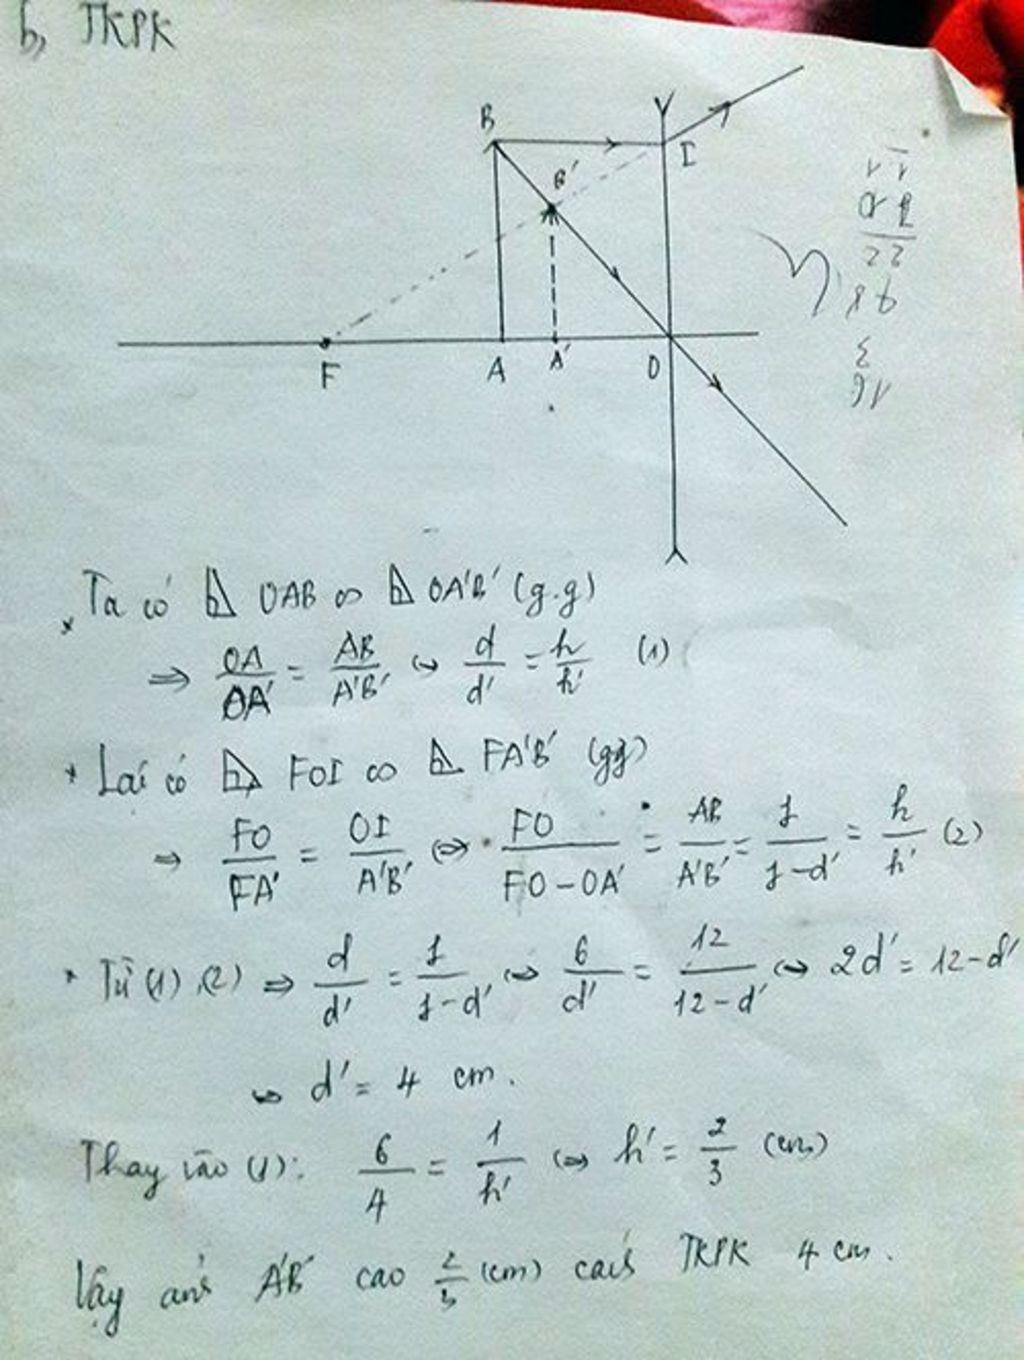 b, TKPK
B
I
B'
F
A
A'
O
* Ta có ⊿ OAB ∽ ⊿ OA'B' (g.g)
⇒ OA/OA' = AB/A'B' ⇔ d/d' = h/h' (1)
* Lại có ⊿ FOI ∽ ⊿ FA'B' (gg)
⇒ FO/FA' = OI/A'B' ⇔ FO/(FO-OA') = AB/A'B' = f/(f-d') = h/h' (2)
* Từ (1), (2) ⇒ d/d' = f/(f-d') ⇔ 6/d' = 12/(12-d') ⇔ 2d' = 12-d'
⇔ d' = 4 cm.
Thay vào (1): 6/4 = 1/h' ⇔ h' = 2/3 (cm)
Vậy ảnh A'B' cao 2/3 (cm) cách TKPK 4 cm.